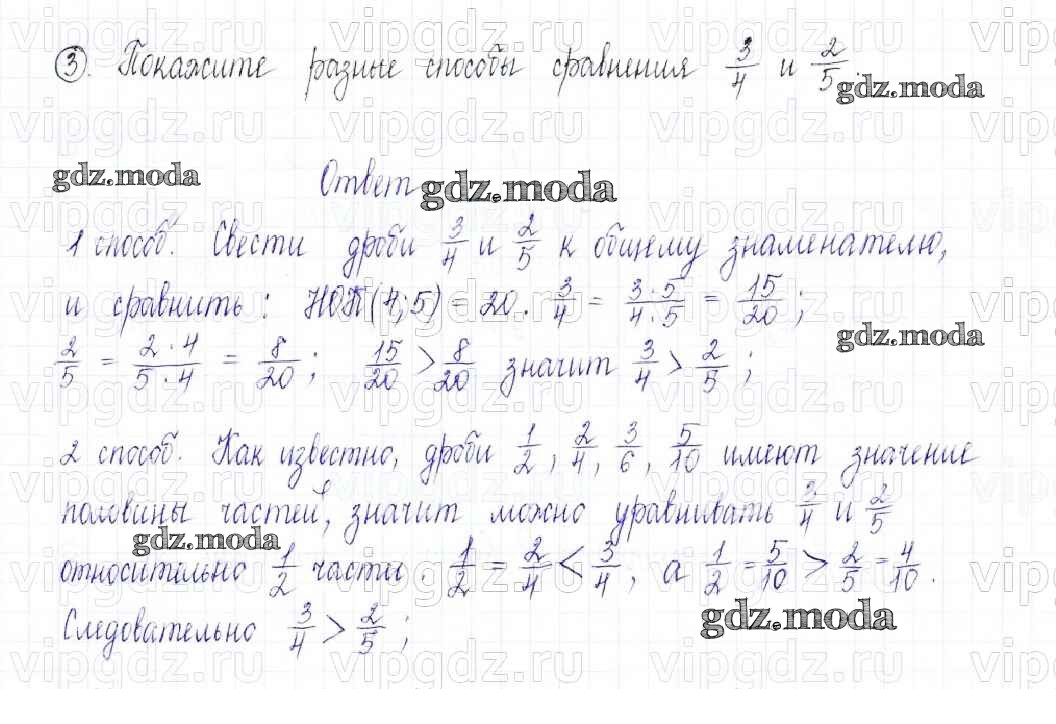 ③. Покажите разные способы сравнения 3/4 и 2/5.
gdz.moda
gdz.moda
Ответ gdz.moda
1 способ. Свести дроби 3/4 и 2/5 к общему знаменателю,
и сравнить: НОК(4;5) = 20. 3/4 = 3·5/4·5 = 15/20;
gdz.moda
2/5 = 2·4/5·4 = 8/20; 15/20 > 8/20 значит 3/4 > 2/5;
2 способ. Как известно, дроби 1/2, 2/4, 3/6, 5/10 имеют значение
половины частей, значит можно уравнивать 3/4 и 2/5
gdz.moda
относительно 1/2 части. 1/2 = 2/4 < 3/4, а 1/2 = 5/10 > 2/5 = 4/10.
gdz.moda
Следовательно 3/4 > 2/5;
vipgdz.ru